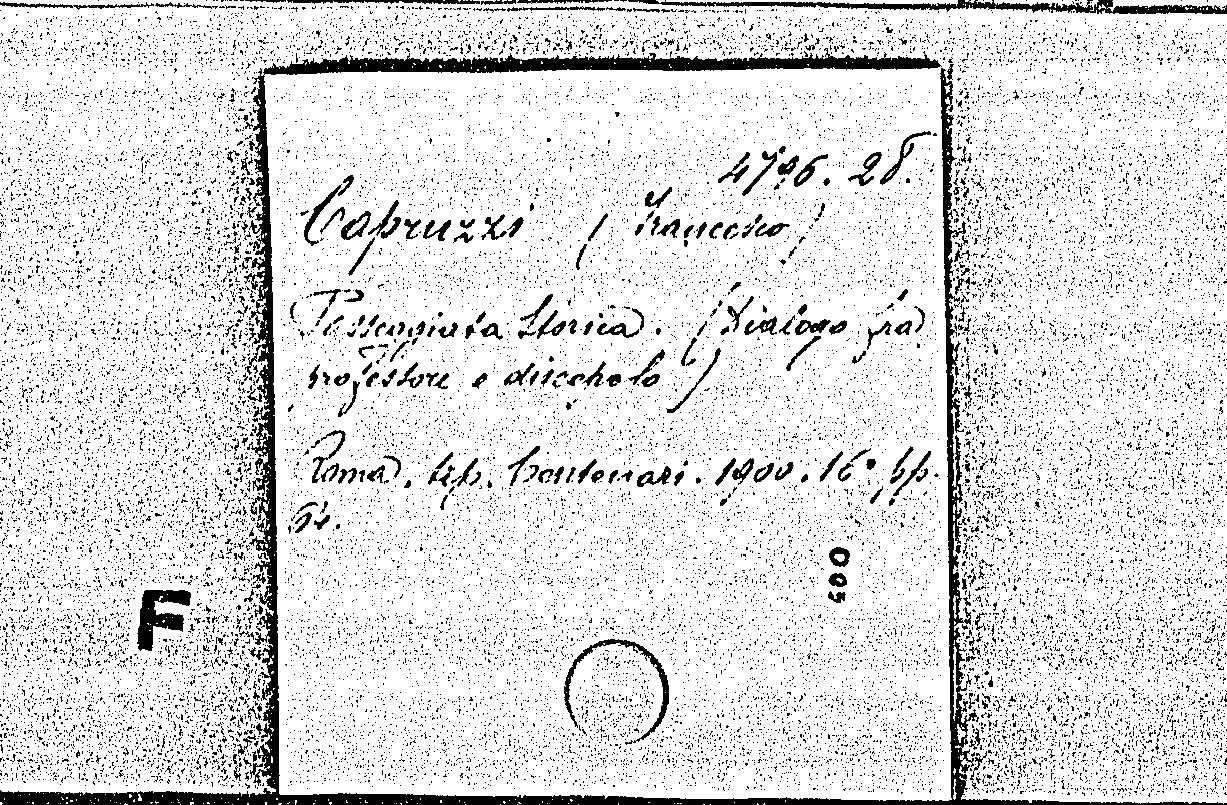 4796. 28.
Capruzzi (Francesco)
Passeggiata Storica. (Dialogo fra
professore e discepolo)
Roma, tip. Centenari. 1900. 16° pp.
F